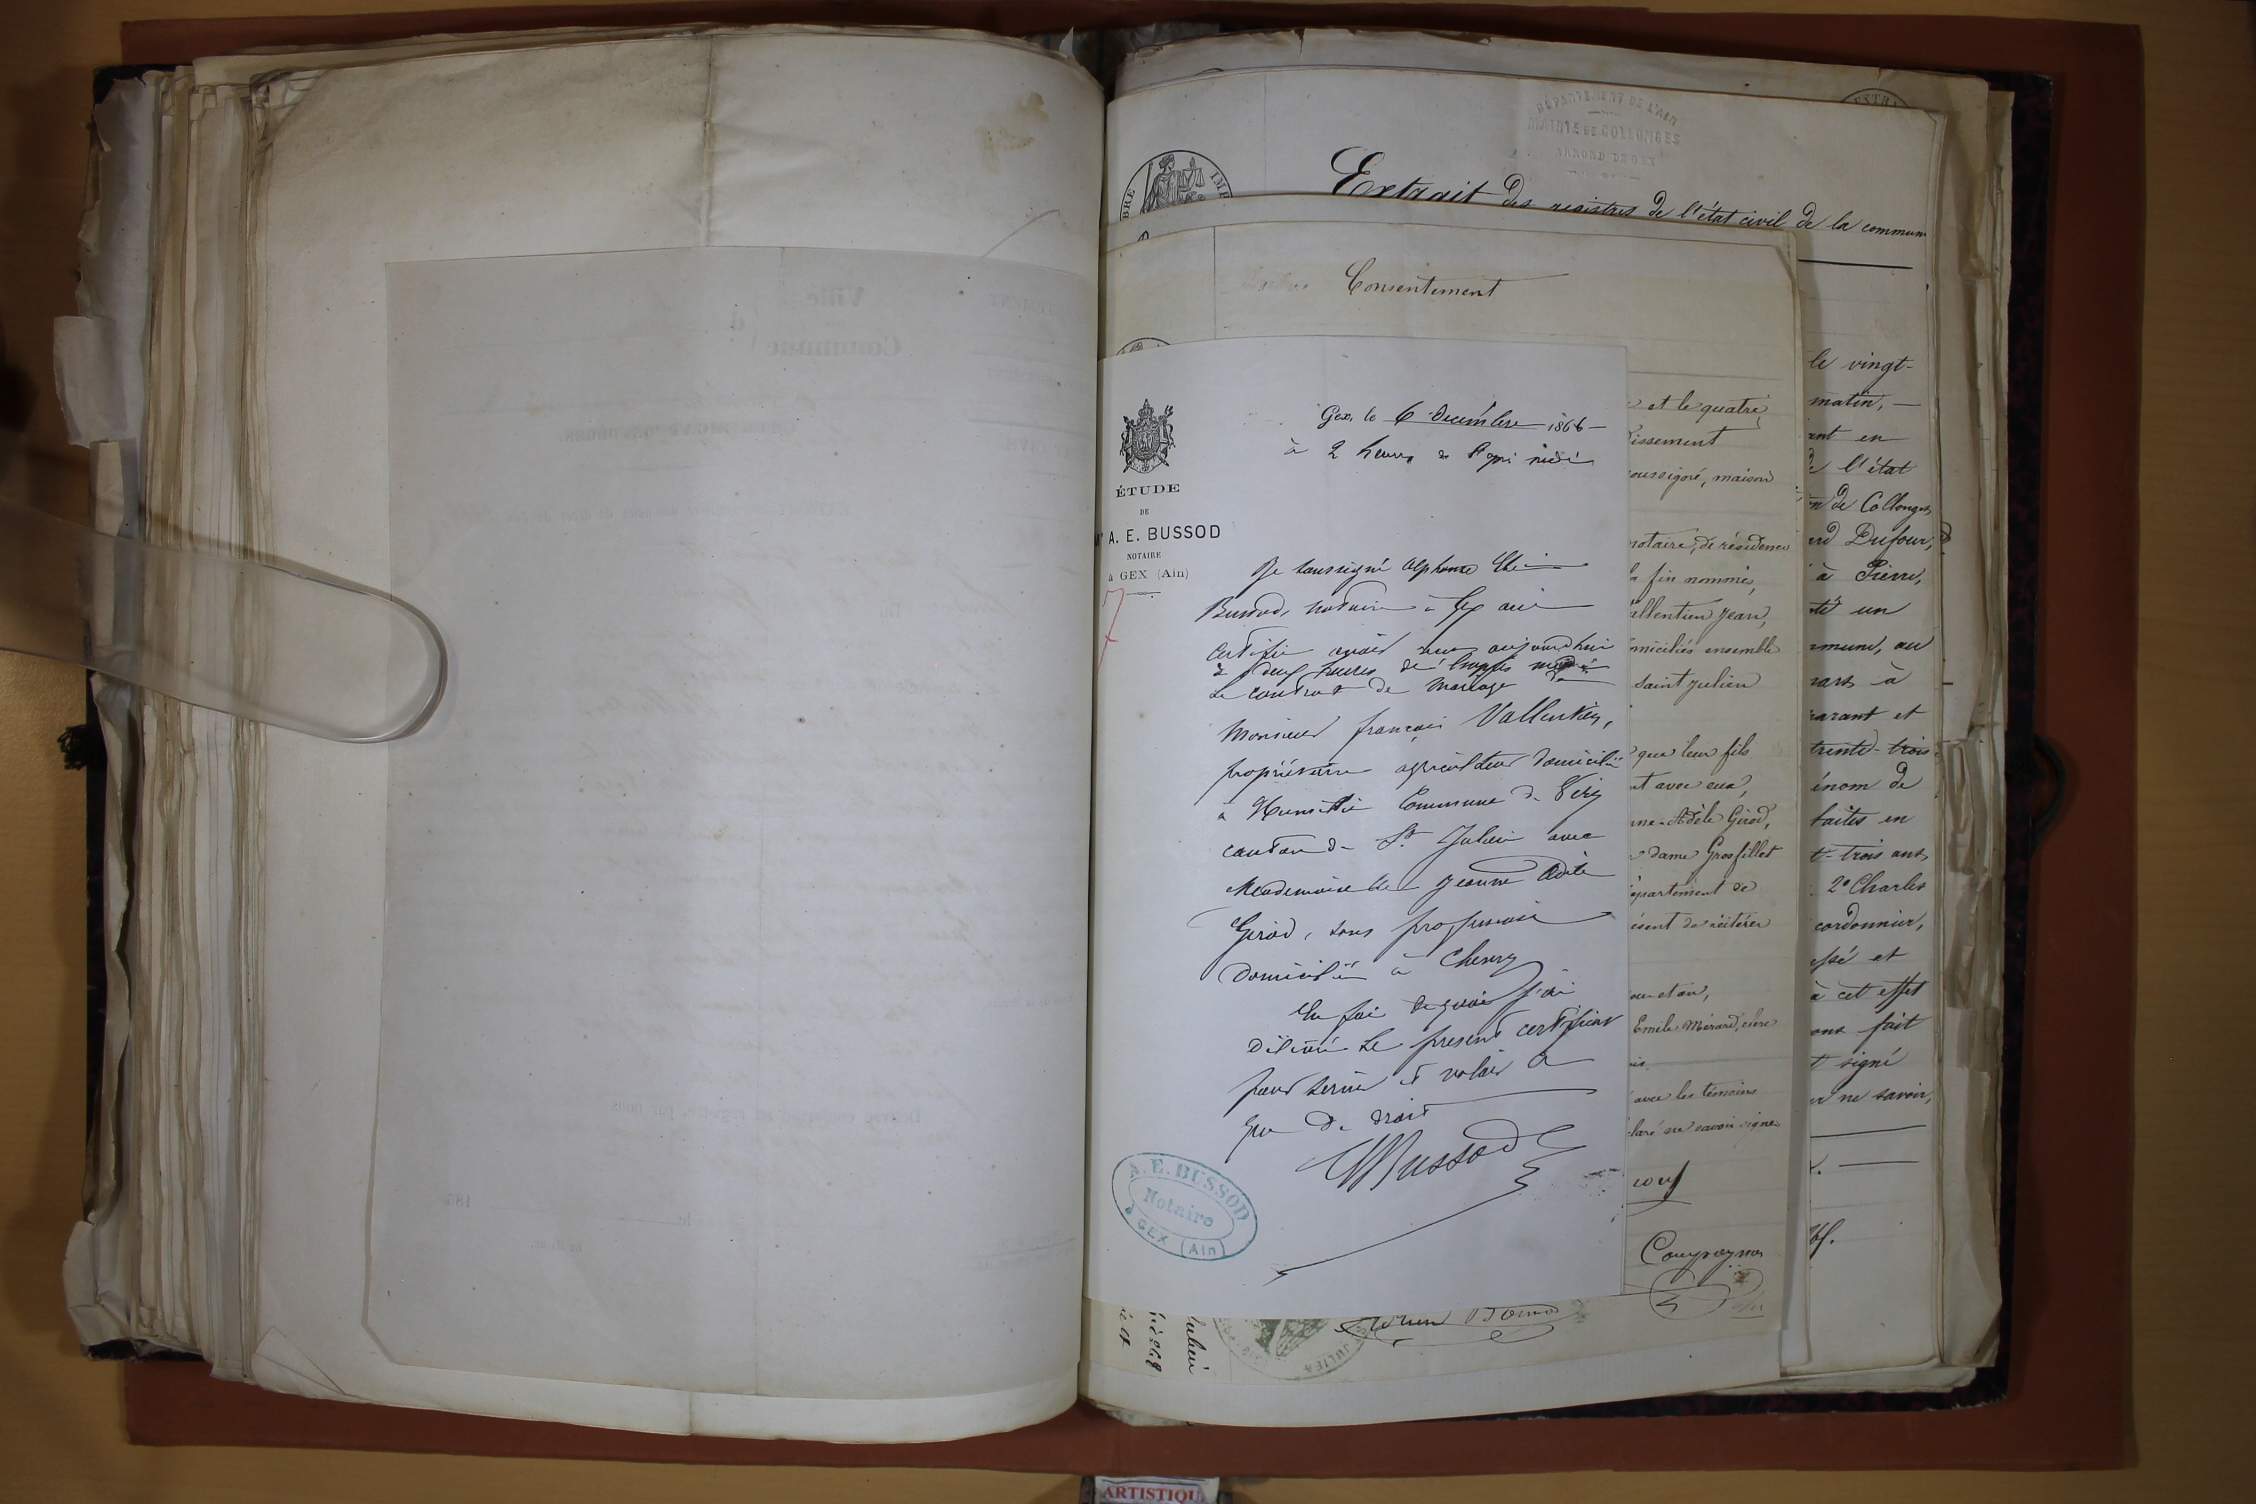 DÉPARTEMENT DE L'AIN
MAIRIE DE COLLONGES
ARROND. DE GEX
Extrait des registres de l'état civil de la commun
Consentement
Gex, le 6 décembre 1866
à 2 heures de l'après midi
ÉTUDE
DE
Me A. E. BUSSOD
NOTAIRE
à GEX (Ain)
Je soussigné Alphonse
Bussod, notaire à Gex ain
certifie avoir reçu aujourd'hui
à deux heures de l'après midi
Le contrat de mariage de
Monsieur françois Vallentien,
propriétaire agriculteur domicilié
à Commune de Viry
canton de St Julien avec
Mademoiselle jeanne Adèle
Girod, sans profession
domiciliée à Chevry
En foi de quoi j'ai
délivré le présent certificat
pour servir et valoir à
que de droit
Bussod
A. E. BUSSOD
Notaire
à GEX (Ain)
et le quatre
issement
soussigné, maison
notaire, de résidence
la fin nommés,
allentien Jean,
omiciliés ensemble
saint julien
que leur fils
nt avec eux,
nne-Adèle Girod,
dame Grosfillet
épartement de
ésent de réitérer
Emile Mérard, clerc
avec les témoins
laré ne savoir signer
le vingt-
matin, —
ant en
l'état
n de Collonges
rd Dufour,
à Pierre,
té un
mmune, au
rars à
arant et
trente-trois
énom de
faites en
t-trois ans,
2° Charles
cordonnier,
ssé et
à cet effet
ons fait
t signé
er ne savoir,
Julien
JULIEN
ARTISTIQU